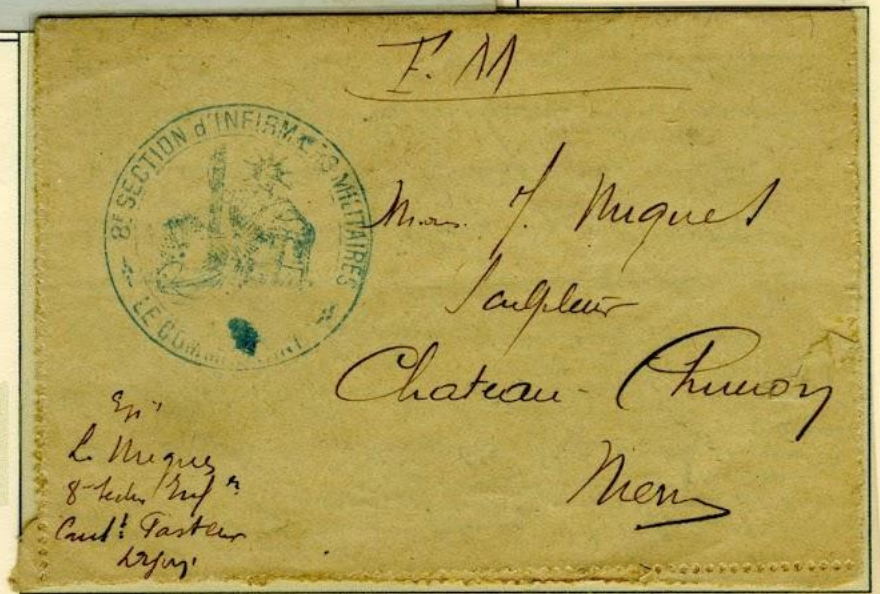 F. M
8E SECTION d'INFIRMIERS MILITAIRES
LE COMMANDANT
Mons. J. Miquel
Sculpteur
Chateau-Chinon
Expr
L. Miquel
8e Section Infrs
Pasteur
Dijon